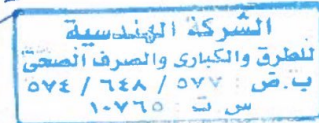 الشركة الهندسية
للطرق والكبارى والصرف الصحى
ب.ض : ٥٧٧ / ٦٤٨ / ٥٧٤
س ت : ١٠٧٦٥